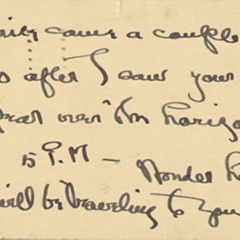 came a couple
after I saw your
over the horizo
5 P.M — Wonder h
will be traveling to you